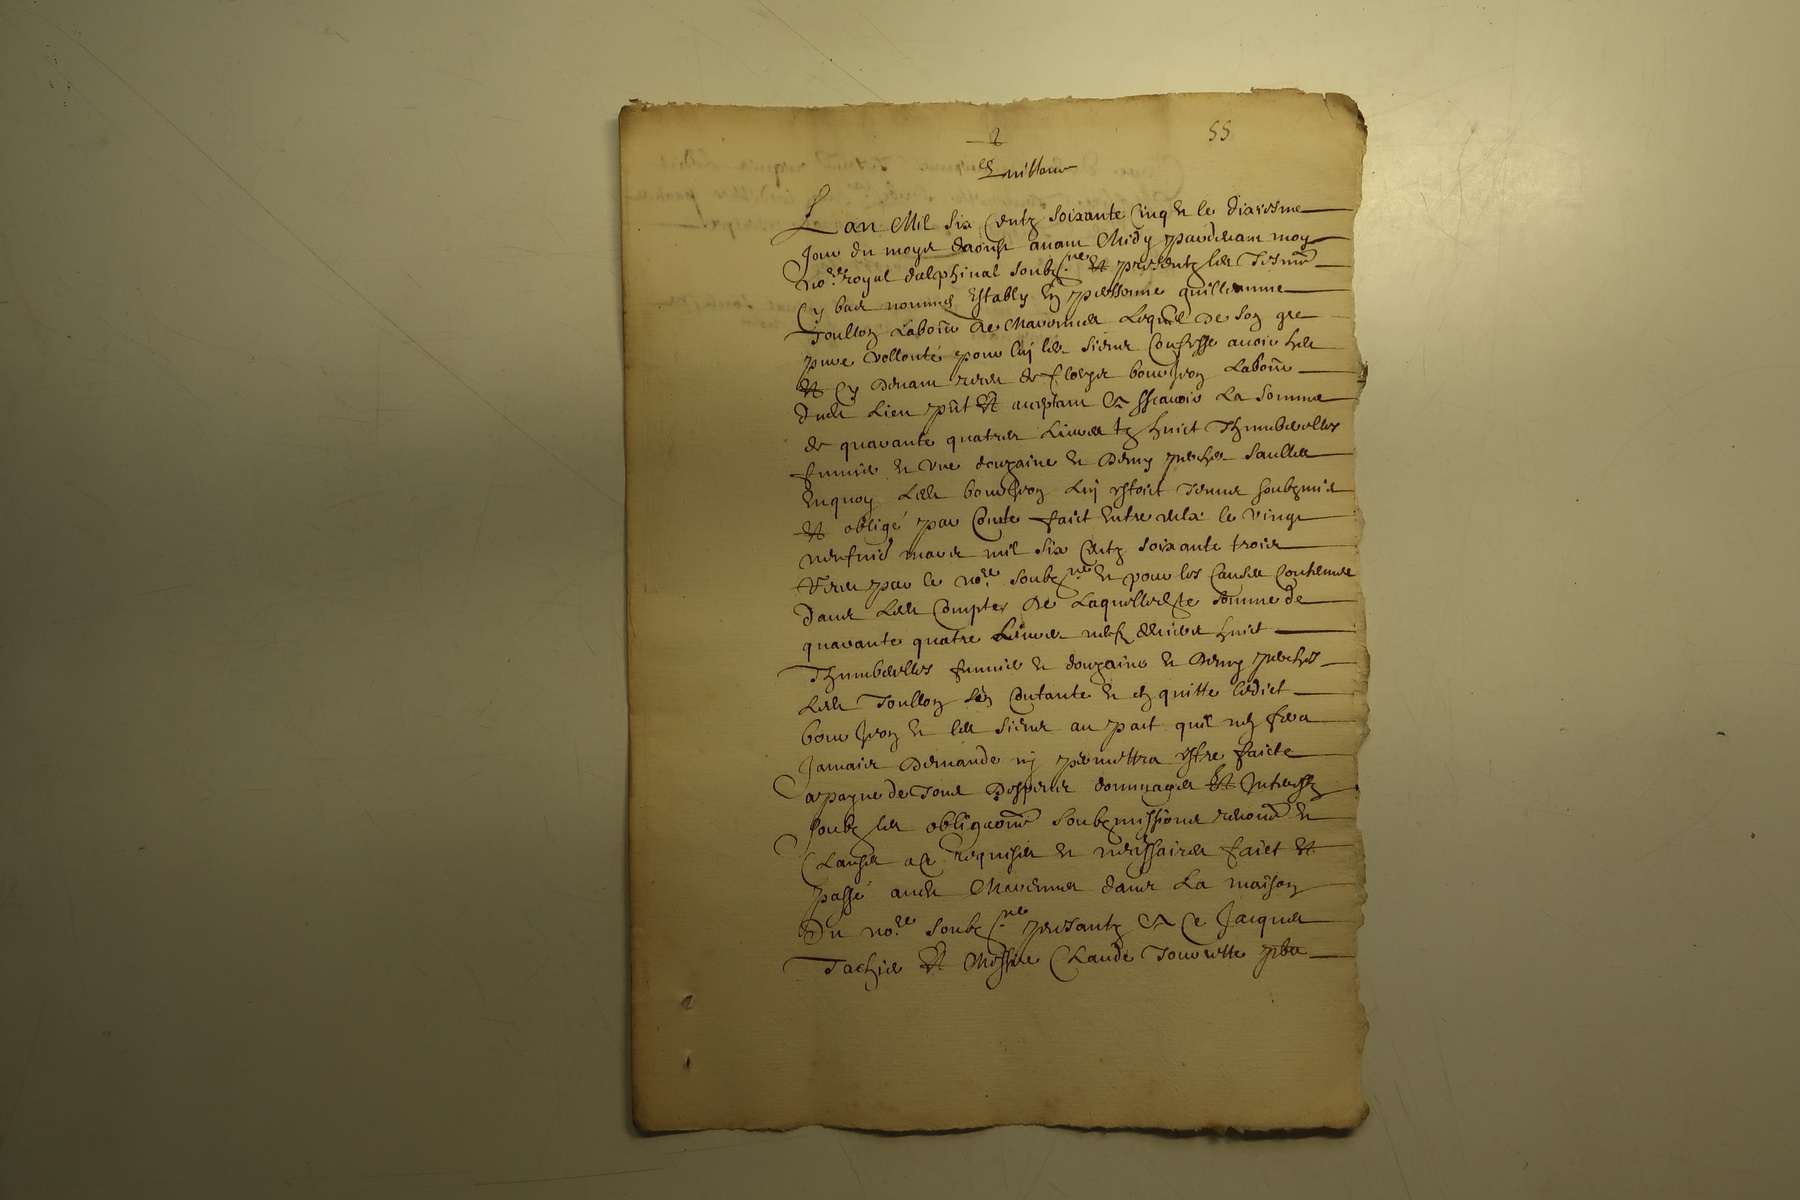 55
Quittance
Lan Mil six Centz soixante Cinq & le dixiesme
Jour du moys daoust avant Midy pardevant moy
no.re royal dalphinal soubz.né et presentz les tesm
Cy bas nommes estably en personne guillaume
Toullon Labour de Mavennes Lequel de son gre
pure vollonté pour luy les siens Confesse avoir heu
et Cy devant receu de bourjon Labour
dudt Lieu pnt et acceptant Scavoir La Somme
de quarante quatres Livres huict
& une douzaine & demy saulles
En quoy Ledt bourjon luy estoict tenu soubzmis
et obligé par Conte faict Entre eulx le vingt
neufvie mars mil six Centz soixante trois
receu par le no.re soubz.né & pour les Causes Contenues
dans Ledt Comptes De Laquelle somme de
quarante quatre Livres huict
& douzaine & demy
Ledt Toullon sen Contante & en quitte ledict
bourjon & les siens au pact quil nen fera
Jamais Demande ny permettra estre faicte
a payne de tous Despens dommages et Interestz
soubz les obligaons soubzmissions renons &
Clauses a Ce requises & necessaires faict et
passé audt Mavennes dans La maison
Du no.re soubz.né presantz A Ce Jacques
Tachie et Messire Claude Tourrette pbre